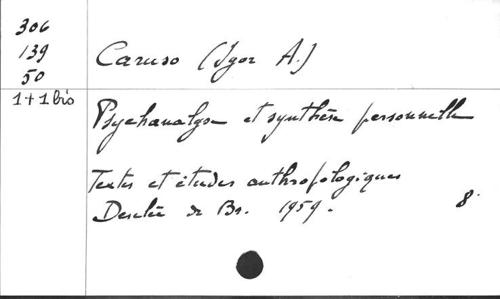 306
139
50
1+1 bis
Caruso (Igor A.)
Psychanalyse et synthèse personnelle
Textes et études anthropologiques
Desclée de Br. 1959.
8.